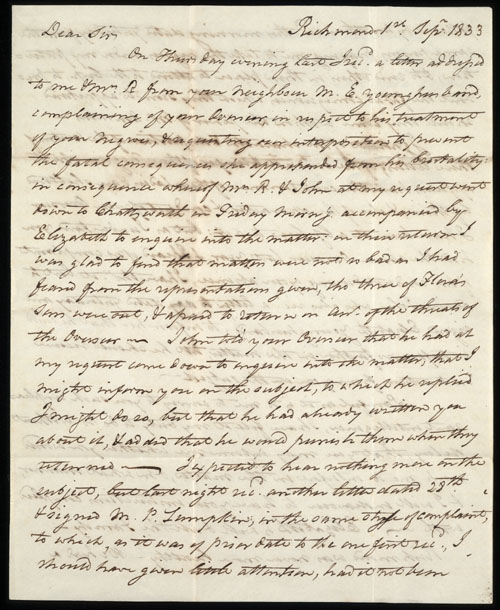 Richmond 1st Sepr. 1833
Dear Sir,
On Thursday evening last I recd. a letter addressed
to me & Mrs. R from your neighbour M. E. Younghusband,
complaining of your Overseer in respect to his treatment
of your Negroes, & requesting our interposition to prevent
the fatal consequences she apprehended from his brutality:
in consequence whereof Mrs. R. & John at my request went
down to Chatsworth on Friday Morng. accompanied by
Elizabeth to enquire into the matter: on their return I
was glad to find that matters were not so bad as I had
feared from the representations given, tho three of Flora's
Sons were out, & afraid to return on acct. of the threats of
the Overseer — John told your Overseer that he had at
my request come down to enquire into the matter, that I
might inform you on the subject, to which he replied
I might do so, but that he had already written you
about it, & added that he would punish them when they
returned — I expected to hear nothing more on the
subject, but last night recd. another letter dated 28th.
& signed M. P. Lumpkin, in the same style of complaint,
to which, as it was of prior date to the one first recd., I
should have given little attention, had it not been